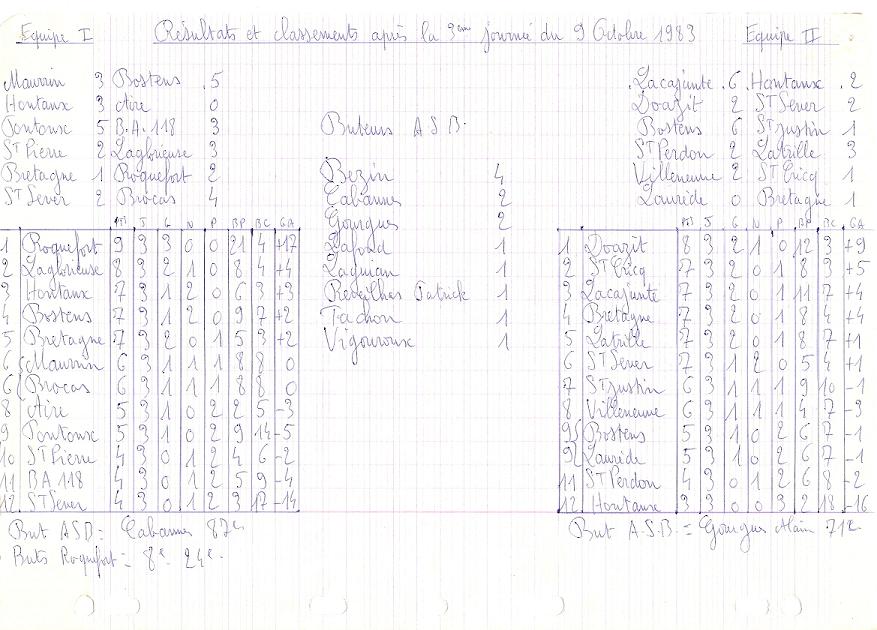 Equipe I
Résultats et classements après la 3ème journée du 9 Octobre 1983
Equipe II
Maurrin 3 Bostens 5
Hontanx 3 Aire 0
Pontonx 5 B.A. 118 3
St Pierre 2 Laglorieuse 3
Bretagne 1 Roquefort 2
St Sever 2 Brocas 4
Lacajunte 6 Hontanx 2
Doazit 2 St Sever 2
Bostens 6 St Justin 1
St Perdon 2 Latrille 3
Villeneuve 2 St Cricq 1
Laurède 0 Bretagne 1
Buteurs A.S.B.
Bezin 4
Cabannes 2
Gourgues 2
Lafond 1
Laguian 1
Reveilhes Patrick 1
Tachon 1
Vigouroux 1
Pts J G N P BP BC GA
1 Roquefort 9 3 3 0 0 21 4 +17
2 Laglorieuse 8 3 2 1 0 8 4 +4
3 Hontanx 7 3 1 2 0 6 3 +3
4 Bostens 7 3 1 2 0 9 7 +2
5 Bretagne 7 3 2 0 1 5 3 +2
6 Maurrin 6 3 1 1 1 8 8 0
6 Brocas 6 3 1 1 1 8 8 0
8 Aire 5 3 1 0 2 2 5 -3
9 Pontonx 5 3 1 0 2 9 14 -5
10 St Pierre 4 3 0 1 2 4 6 -2
11 BA 118 4 3 0 1 2 5 9 -4
12 St Sever 4 3 0 1 2 3 17 -14
Pts J G N P BP BC GA
1 Doazit 8 3 2 1 0 12 3 +9
2 St Cricq 7 3 2 0 1 8 3 +5
3 Lacajunte 7 3 2 0 1 11 7 +4
4 Bretagne 7 3 2 0 1 8 4 +4
5 Latrille 7 3 2 0 1 8 7 +1
6 St Sever 7 3 1 2 0 5 4 +1
7 St Justin 6 3 1 1 1 9 10 -1
8 Villeneuve 6 3 1 1 1 4 7 -3
9 Bostens 5 3 1 0 2 6 7 -1
9 Laurède 5 3 1 0 2 6 7 -1
11 St Perdon 4 3 0 1 2 6 8 -2
12 Hontanx 3 3 0 0 3 2 18 -16
But ASB = Cabannes 87e
Buts Roquefort = 8e 24e.
But A.S.B. = Gourgues Alain 71e